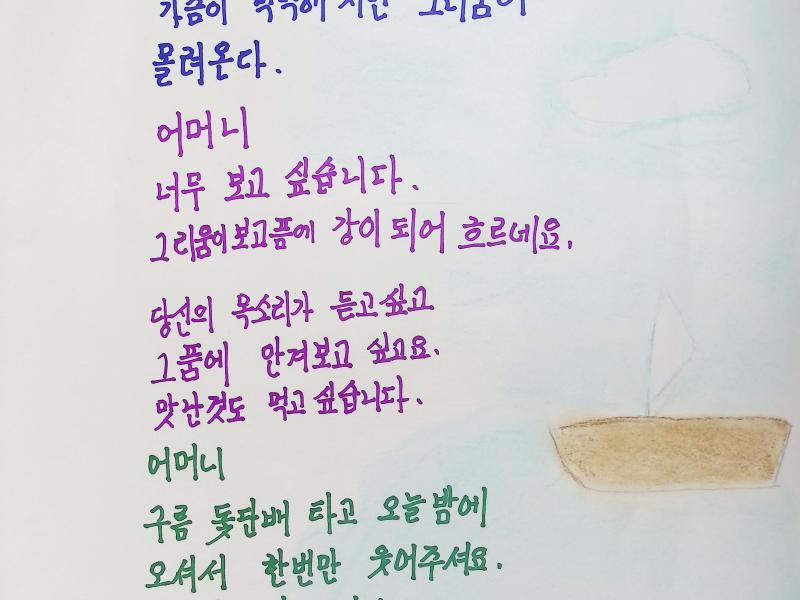 가슴이 먹먹해 지만 그리움이
몰려온다.
어머니
너무 보고 싶습니다.
그리움이 보고픔에 강이 되어 흐르네요.
당신의 목소리가 듣고 싶고
그 품에 안겨보고 싶고요.
맛난것도 먹고 싶습니다.
어머니
구름 돛단배 타고 오늘 밤에
오셔서 한번만 웃어주셔요.